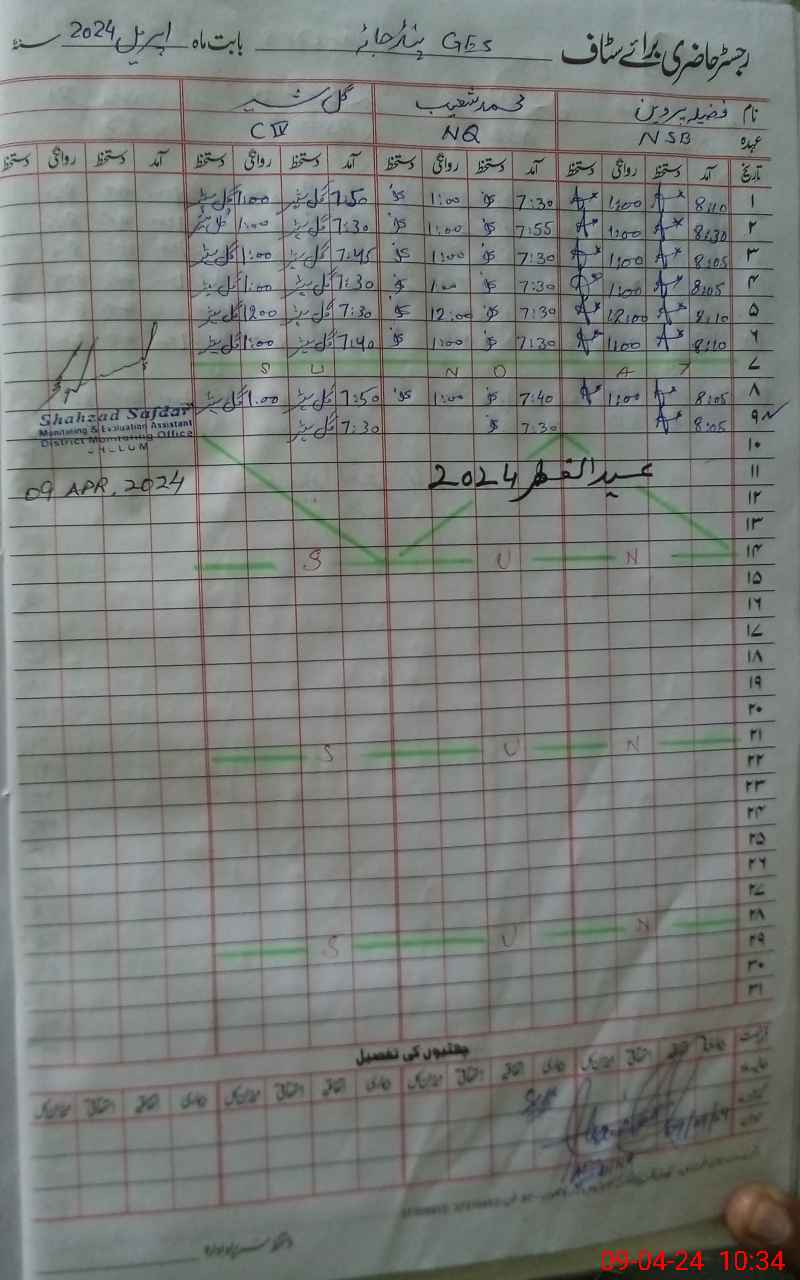 رجسٹر حاضری برائے سٹاف GES پنڈ جاٹہ بابت ماہ اپریل 2024 سنہ
نام فضیلہ پروین محمد شعیب گل شیر
عہدہ NSB NQ C IV
تاریخ آمد دستخط روانگی دستخط آمد دستخط روانگی دستخط آمد دستخط روانگی دستخط آمد دستخط روانگی دستخط
۱ 8:10 1:00 7:30 1:00 7:50 گل شیر 1:00 گل شیر
۲ 8:30 1:00 7:55 1:00 7:30 گل شیر 1:00 گل شیر
۳ 8:05 1:00 7:30 1:00 7:45 گل شیر 1:00 گل شیر
۴ 8:05 1:00 7:30 1:00 7:30 گل شیر 1:00 گل شیر
۵ 8:10 12:00 7:30 12:00 7:30 گل شیر 1200 گل شیر
۶ 8:10 1:00 7:30 1:00 7:40 گل شیر 1:00 گل شیر
۷ S U N D A Y
۸ 8:05 1:00 7:40 1:00 7:50 گل شیر 1:00 گل شیر
۹ 8:05 7:30 7:30 گل شیر
Shahzad Safdar
Monitoring & Evaluation Assistant
District Monitoring Office
JHELUM
09 APR, 2024
۱۰
۱۱ عید الفطر 2024
۱۲
۱۳
۱۴ S U N
۱۵
۱۶
۱۷
۱۸
۱۹
۲۰
۲۱ S U N
۲۲
۲۳
۲۴
۲۵
۲۶
۲۷
۲۸ S U N
۲۹
۳۰
۳۱
چھٹیوں کی تفصیل
09-04-24 10:34